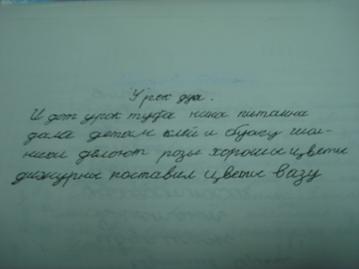 Урок дуа.
И дет урок туба нина питаина
дала детам клей и бумагу шка-
ники делают розы хорошие цвети
дижурне поставил цвети вазу